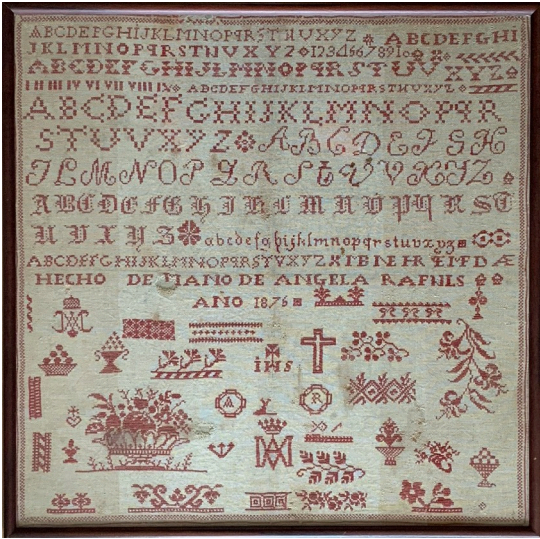 ABCDEFGHIJKLMNOPQRSTUVXYZ ABCDEFGHI
JKLMNOPQRSTUVXYZ 12345678910
ABCDEFGHIJLMNOPQRSTUV XYZ
I II III IV V VI VII VIII IX ABCDEFGHIJKLMNOPQRSTUVXYZ
ABCDEFGHIJKLMNOPQR
STUVXYZ ABCDEFGH
JLMNOPQRSTUVXYZ
ABCDEFGHIJKLMNOPQRST
UVXYZ abcdefghijklmnopqrstuvxyz
ABCDEFGHIJKLMNOPQRSTUVXYZ
HECHO DE MANO DE ANGELA RAFNLS
AÑO 1876
IHS
A R